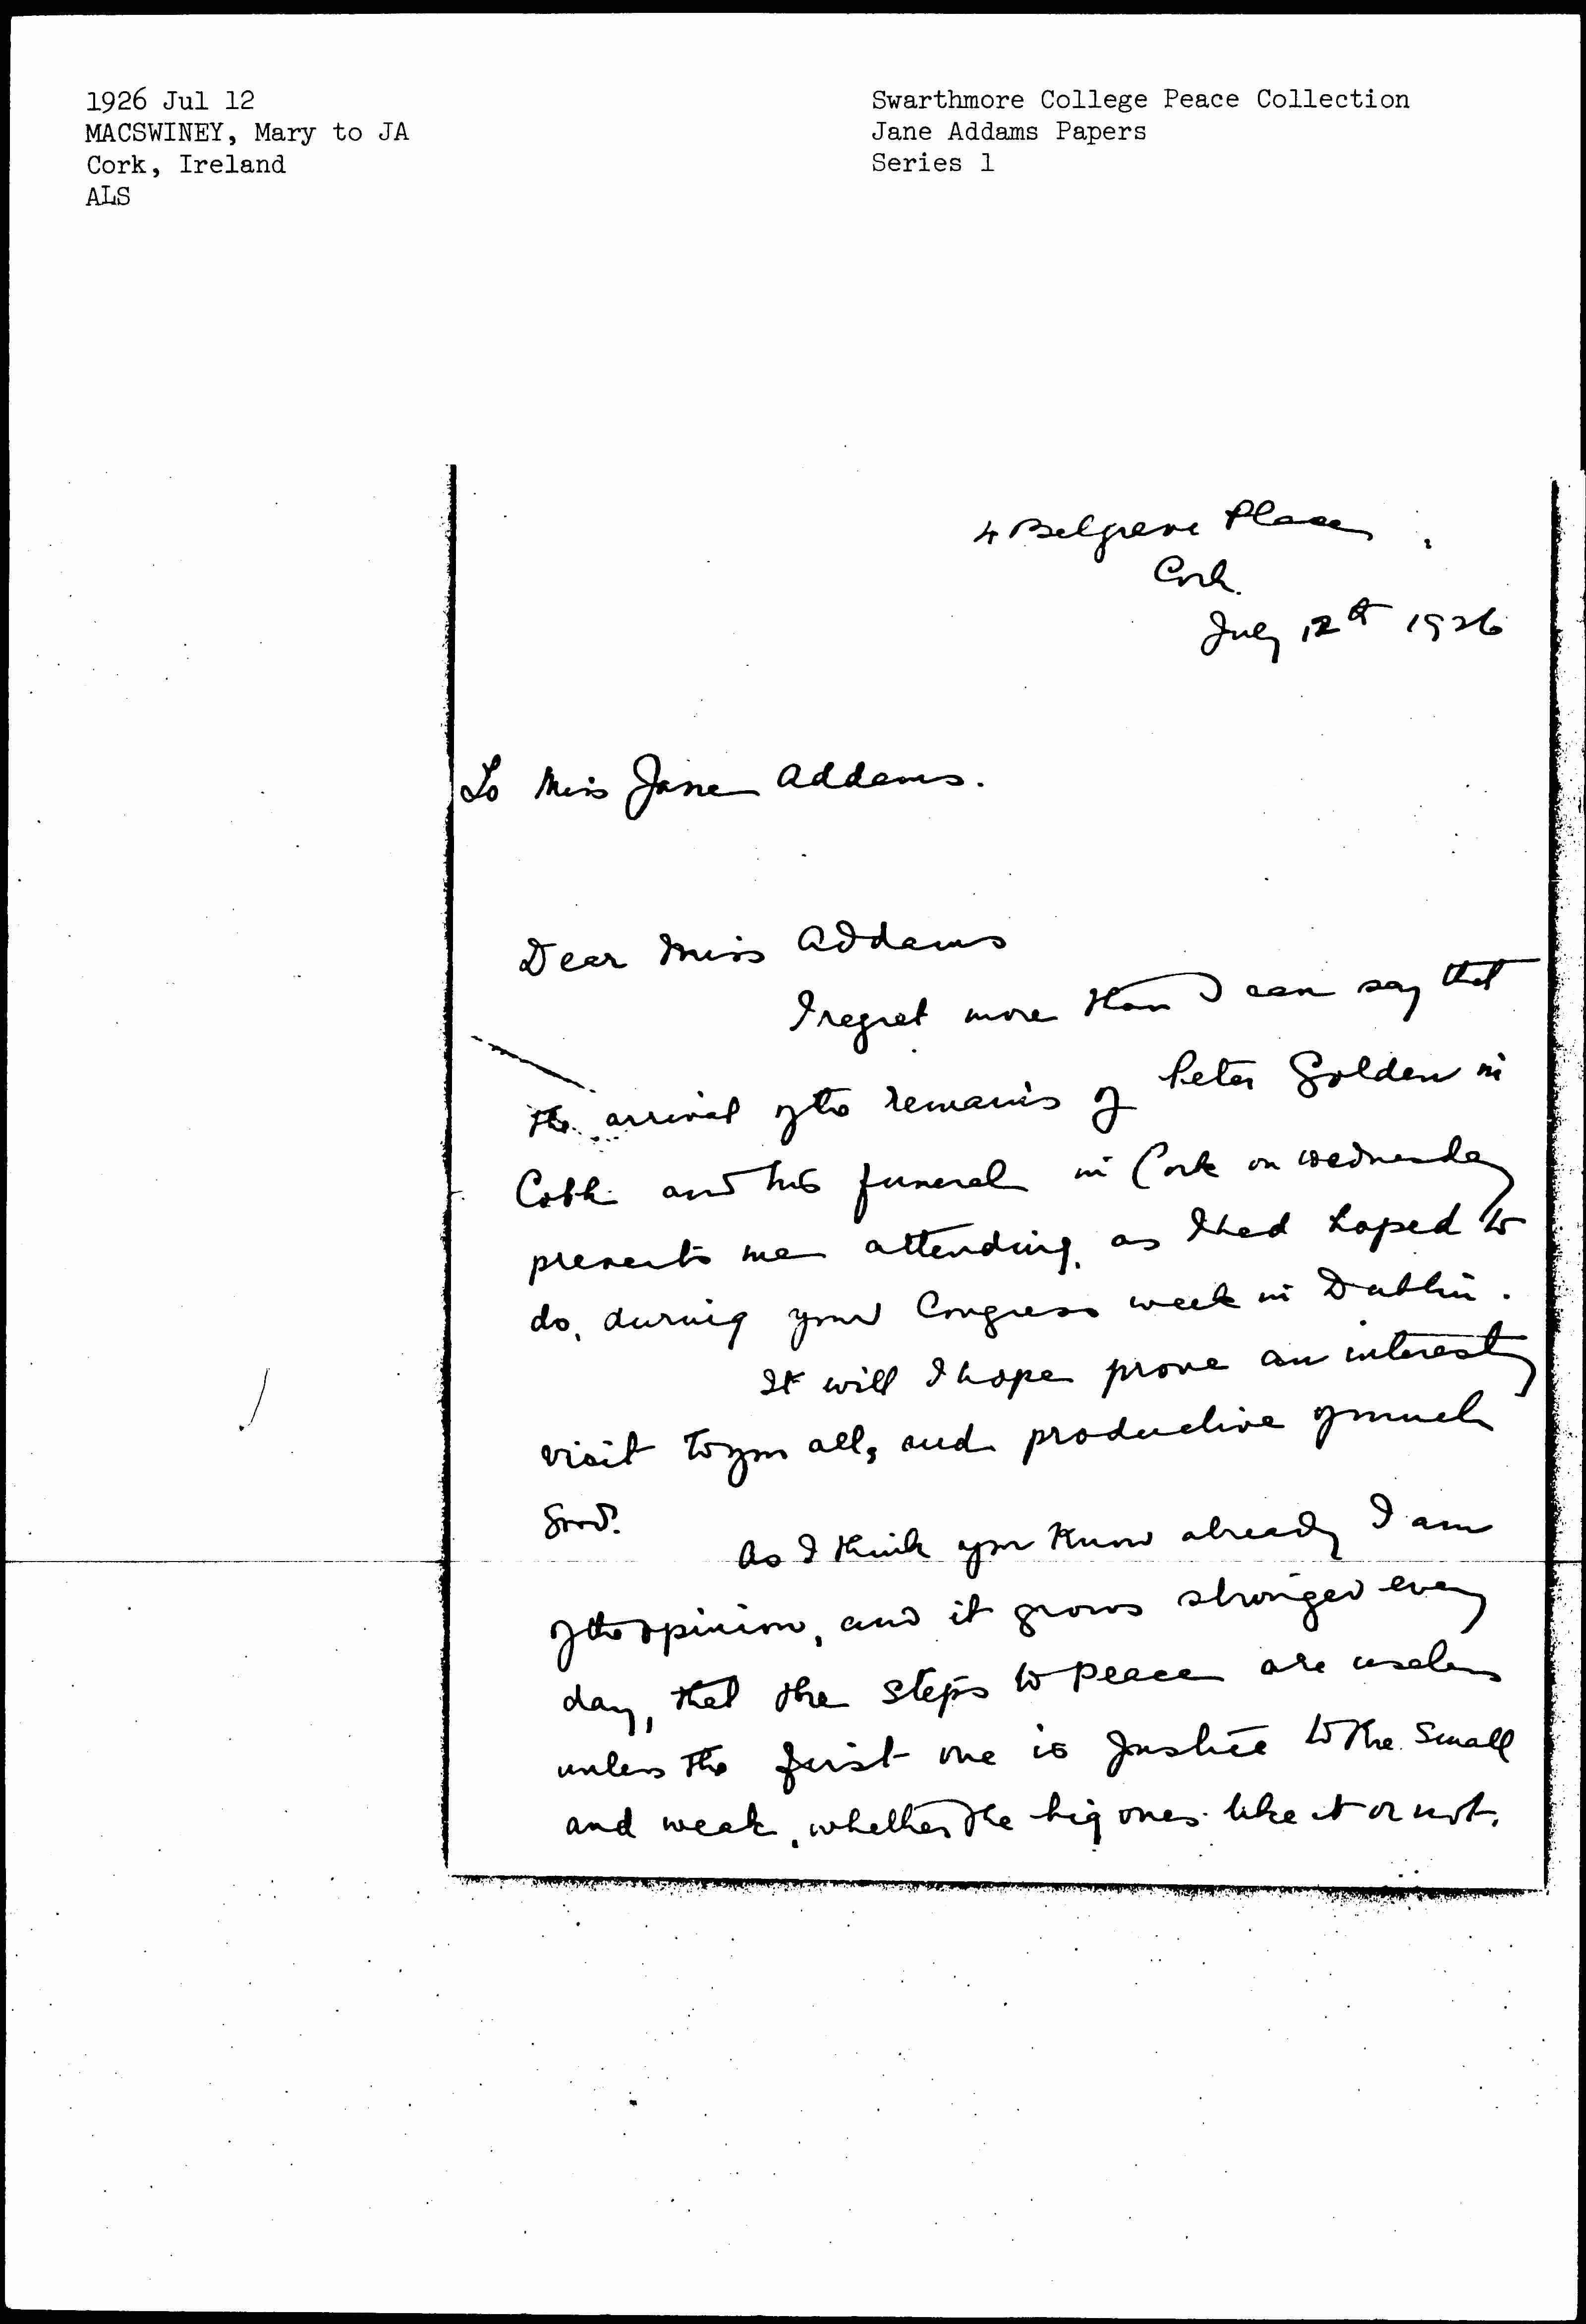 1926 Jul 12
MACSWINEY, Mary to JA
Cork, Ireland
ALS
Swarthmore College Peace Collection
Jane Addams Papers
Series 1
4 Belgrave Place,
Cork.
July 12th 1926
To Miss Jane Addams.
Dear Miss Addams
I regret more than I can say that
the arrival of the remains of Peter Golden in
Cobh and his funeral in Cork on Wednesday
prevents me attending, as I had hoped to
do, during your Congress week in Dublin.
It will I hope prove an interesting
visit to you all, and productive of much
good.
As I think you know already I am
of the opinion, and it grows stronger every
day, that the steps to peace are useless
unless the first one is Justice to the small
and weak, whether the big ones like it or not.